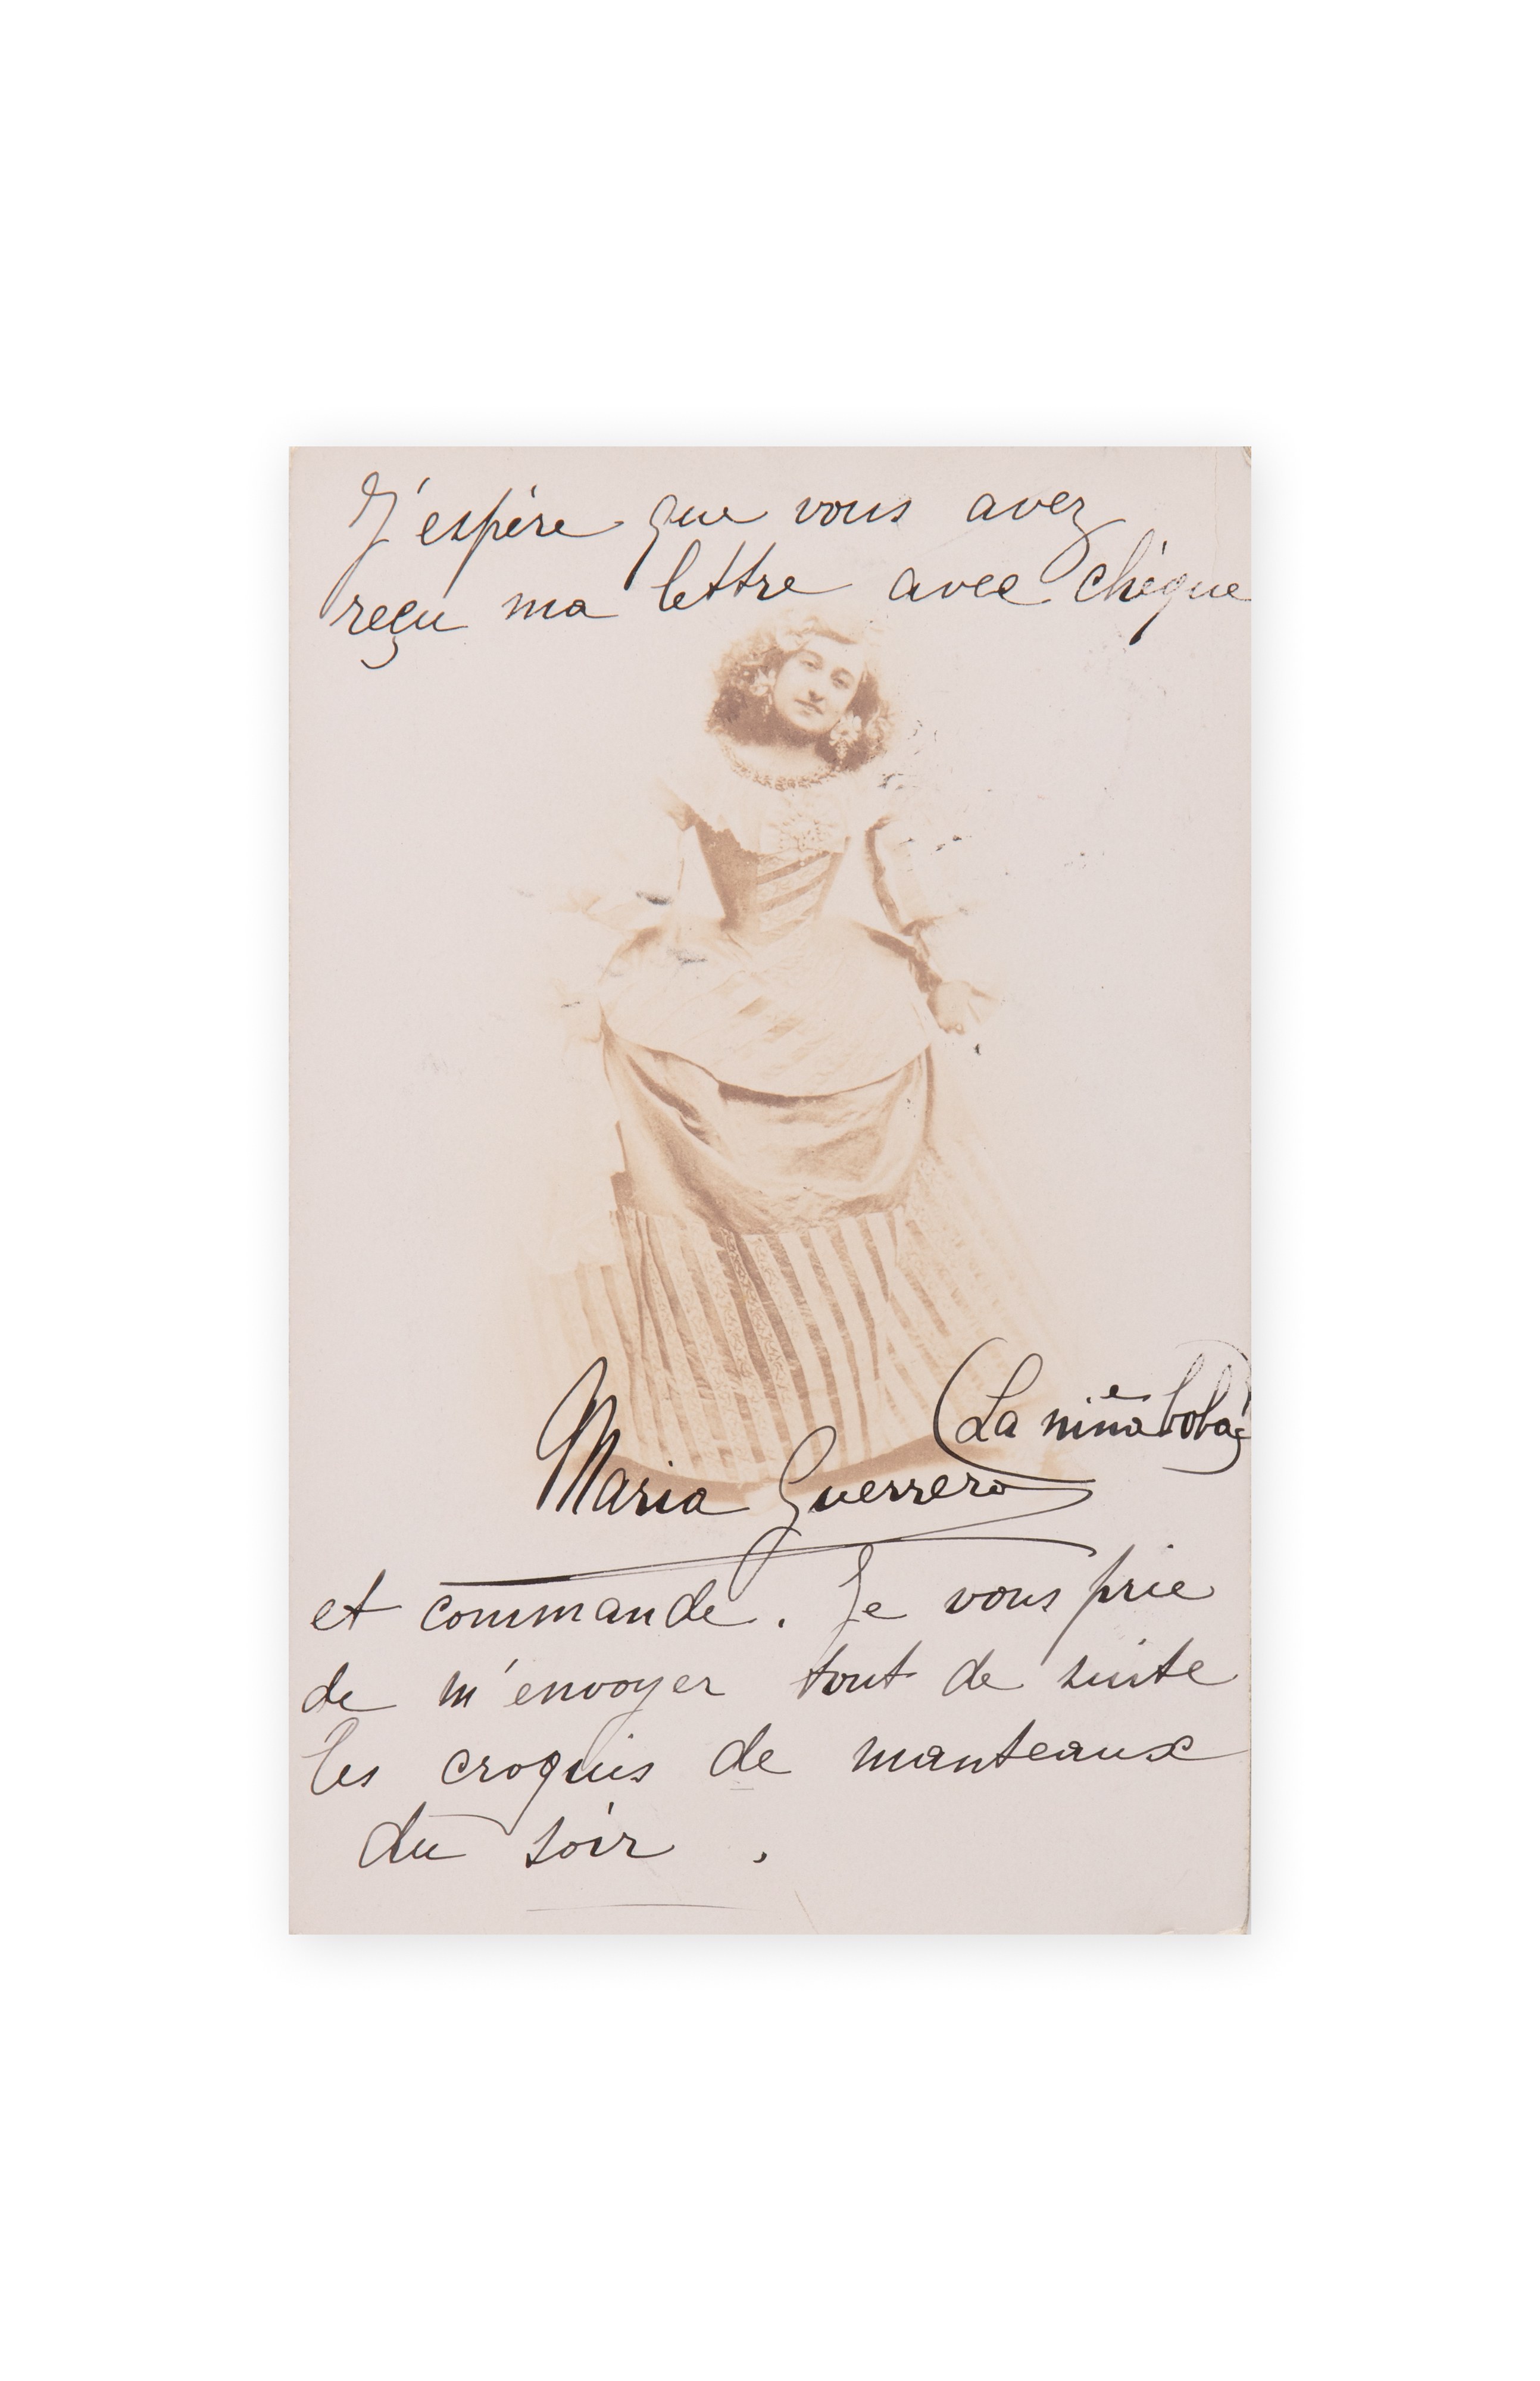 J'espère que vous avez
reçu ma lettre avec chèque
(La niña boba)
Maria Guerrero
et commande. Je vous prie
de m'envoyer tout de suite
les croquis de manteaux
du soir.